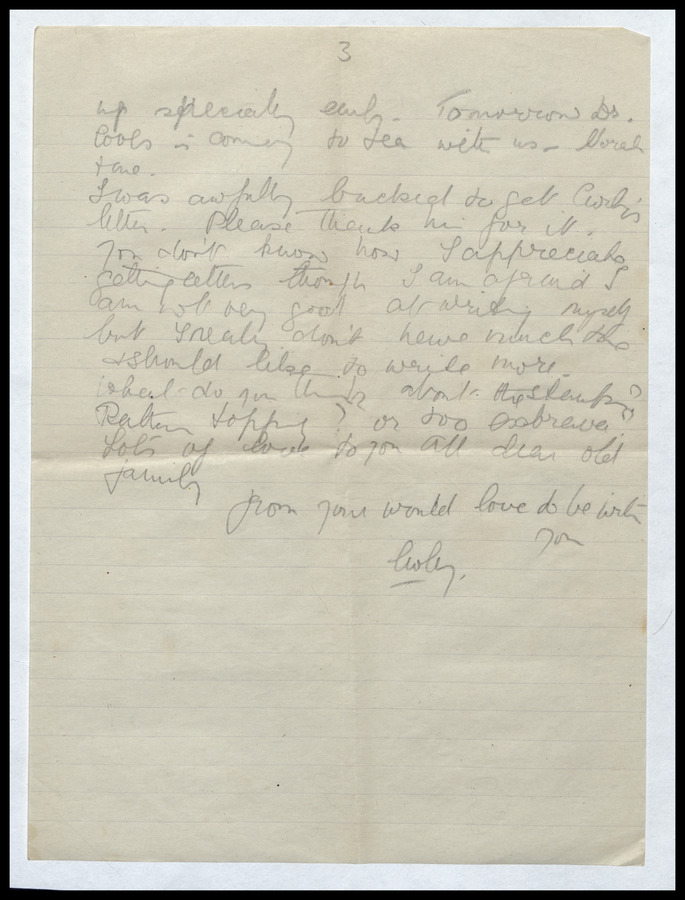 3
up specially early. Tomorrow Dr.
is coming to tea with us - Norah
& me.
I was awfully bucked to get
letter. Please thank him for it.
You don't know how I appreciate
getting letters though I am afraid I
am not very good at writing myself
but I really don't have much
& should like to write more.
What do you think about the stamps?
Rather topping? or too
Lots of love to you all dear old
family
from your would love to be with
you